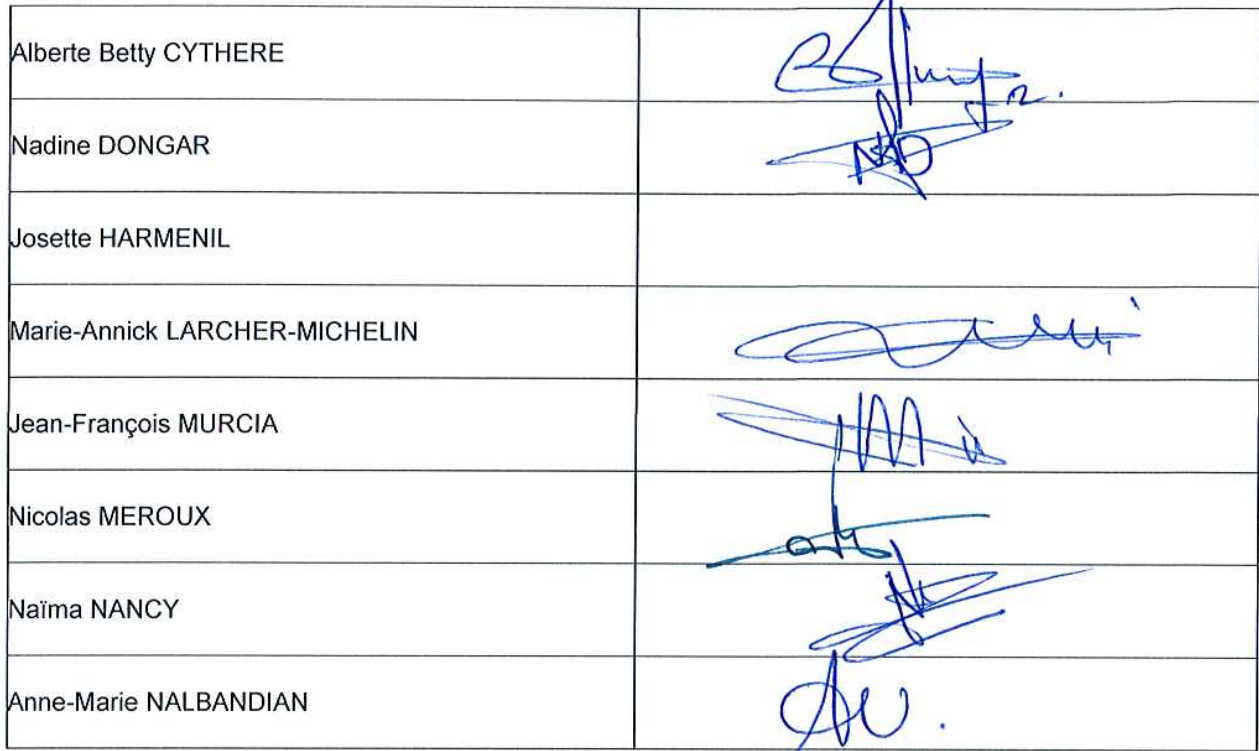 Alberte Betty CYTHERE
Nadine DONGAR
Josette HARMENIL
Marie-Annick LARCHER-MICHELIN
Jean-François MURCIA
Nicolas MEROUX
Naïma NANCY
Anne-Marie NALBANDIAN